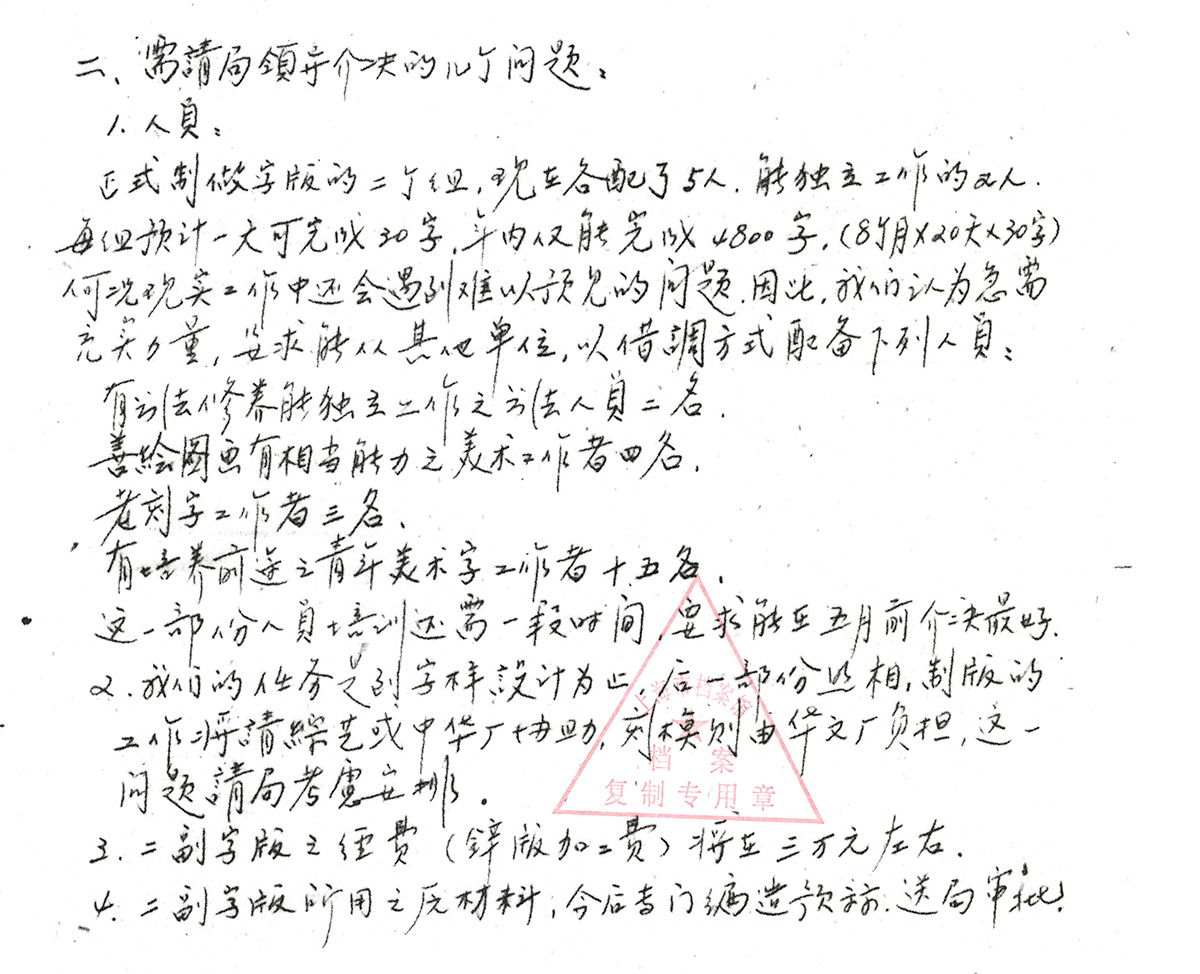 二、需請局領导介决的几个问题：
1. 人員：
正式制做字版的二个组，现在各配了5人．能独立工作的2人．
每组预计一天可完成30字，年内仅能完成4800字，(8个月×20天×30字)
何况现实工作中还会遇到难以预见的问题．因此，我们认为急需
充实力量，要求能从其他单位，以借調方式配备下列人員：
有书法修养能独立工作之书法人員二名．
善绘图画有相当能力之美术工作者四名．
老刻字工作者三名．
有培养前途之青年美术字工作者十五名．
这一部份人員培训还需一段时间，要求能在五月前介决最好．
2. 我们的任务是到字样設计为止，后一部份照相，制版的
工作将請綜艺或中华厂协助，刻模则由华文厂负担，这一
问题請局考慮安排。
3. 二副字版之经费（鋅版加工费）将在三万元左右．
4. 二副字版所用之原材料，今后专门编造预祘．送局审批．
上海市档案馆
档案
复制专用章